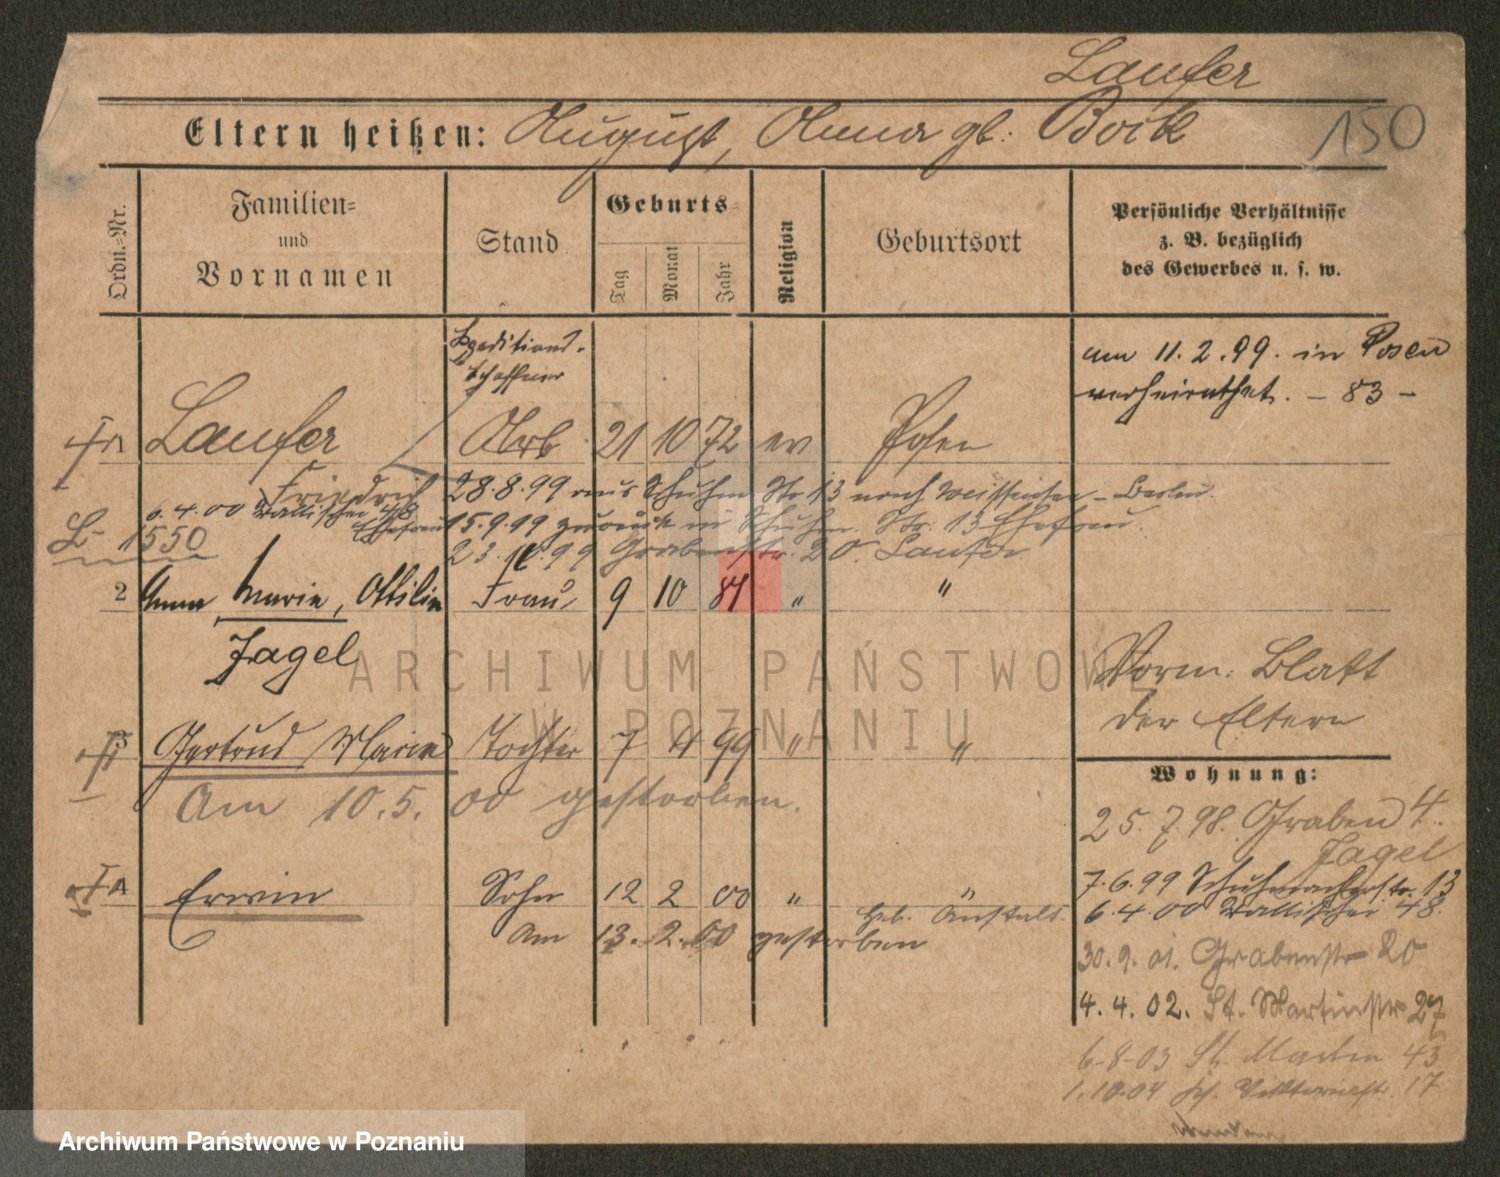 Laufer
Eltern heißen: August, Anna gb. Bock
150
Ordn.=Nr.
Familien=
und
Vornamen
Stand
Geburts=
Tag
Monat
Jahr
Religion
Geburtsort
Persönliche Verhältnisse
z. B. bezüglich
des Gewerbes u. s. w.
Speditions-
schaffner
am 11.2.99. in Posen
verheirathet. - 83 -
1 Laufer Arb 21 10 72 ev Posen
Friedrich
28.8.99 aus Schuhm Str 13 nach Weissensee - Berlin.
6.4.00 Wallischei 48
Ehefrau
15.9.99 zurück n Schuhm. Str. 13 Ehefrau
1550
23.11.99 Grabenstr. 20. Laufer.
2 Anna, Marie, Ottilie Frau 9 10 "  "
Jagel
Vorm. Blatt
der Eltern
3 Gertrud Marie Tochter 7 4 99 " "
Am 10.5. 00 gestorben.
Wohnung:
25.7.98. Graben 4.
Jagel
7.6.99 Schuhmacherstr. 13
4 Erwin Sohn 12 2 00 " "
6.4.00 Wallischei 48.
Heb. Anstalt.
Am 13. 2. 00 gestorben
30.9.01. Grabenstr 20
4.4.02. St. Martinstr 27
6-8-03 St. Martin 43
1.10.04 Viktoriastr. 17
ARCHIWUM PAŃSTWOWE
W POZNANIU
Archiwum Państwowe w Poznaniu